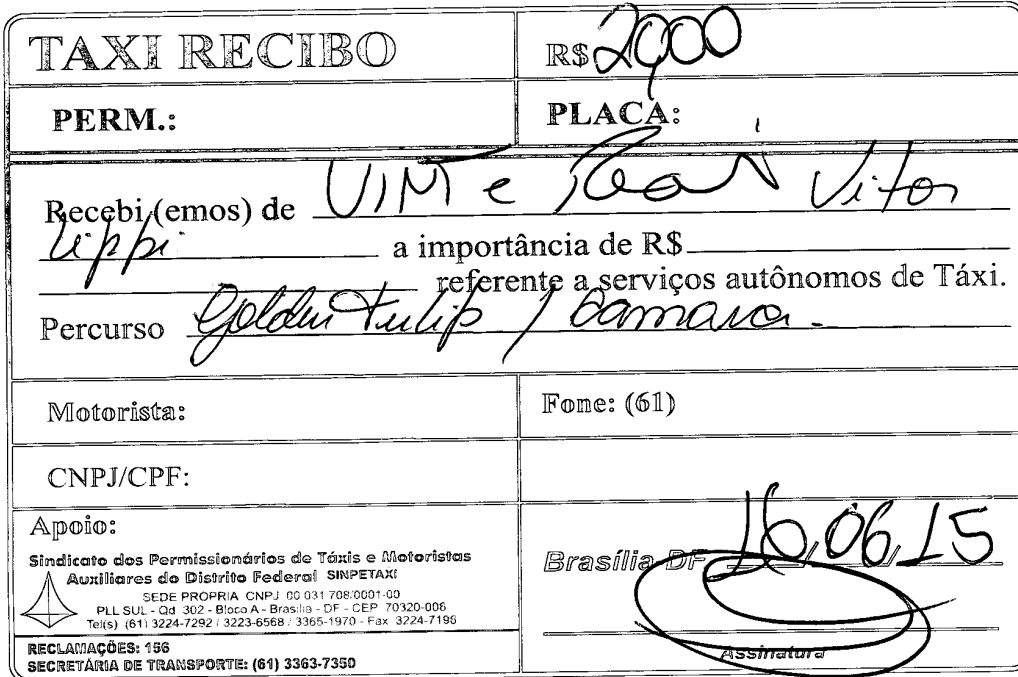 TAXI RECIBO
R$ 20,00
PERM.:
PLACA:
Recebi (emos) de Vinte Reais Vitor
Lippi a importância de R$
referente a serviços autônomos de Táxi.
Percurso Golden Tulip / Camara.
Motorista:
Fone: (61)
CNPJ/CPF:
Apoio:
Sindicato dos Permissionários de Táxis e Motoristas
Auxiliares do Distrito Federal SINPETAXI
SEDE PROPRIA CNPJ 00 031 708/0001-00
PLL SUL - Qd 302 - Bloco A - Brasília - DF - CEP 70320-006
Tel(s) (61) 3224-7292 / 3223-6568 / 3365-1970 - Fax 3224-7196
RECLAMAÇÕES: 156
SECRETÁRIA DE TRANSPORTE: (61) 3363-7350
Brasília DF 16/06/15
Assinatura